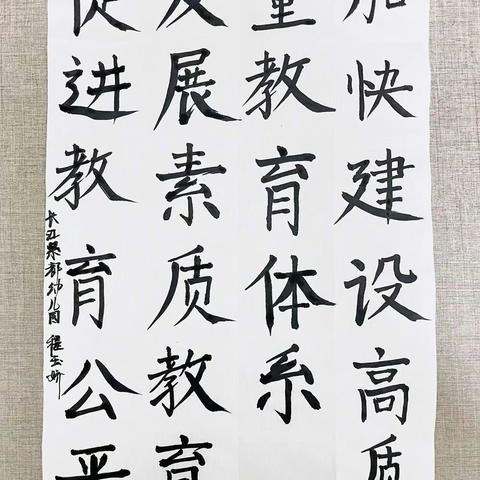 加快建设高质
量教育体系
发展素质教育
促进教育公平
长江都幼儿园 程玉